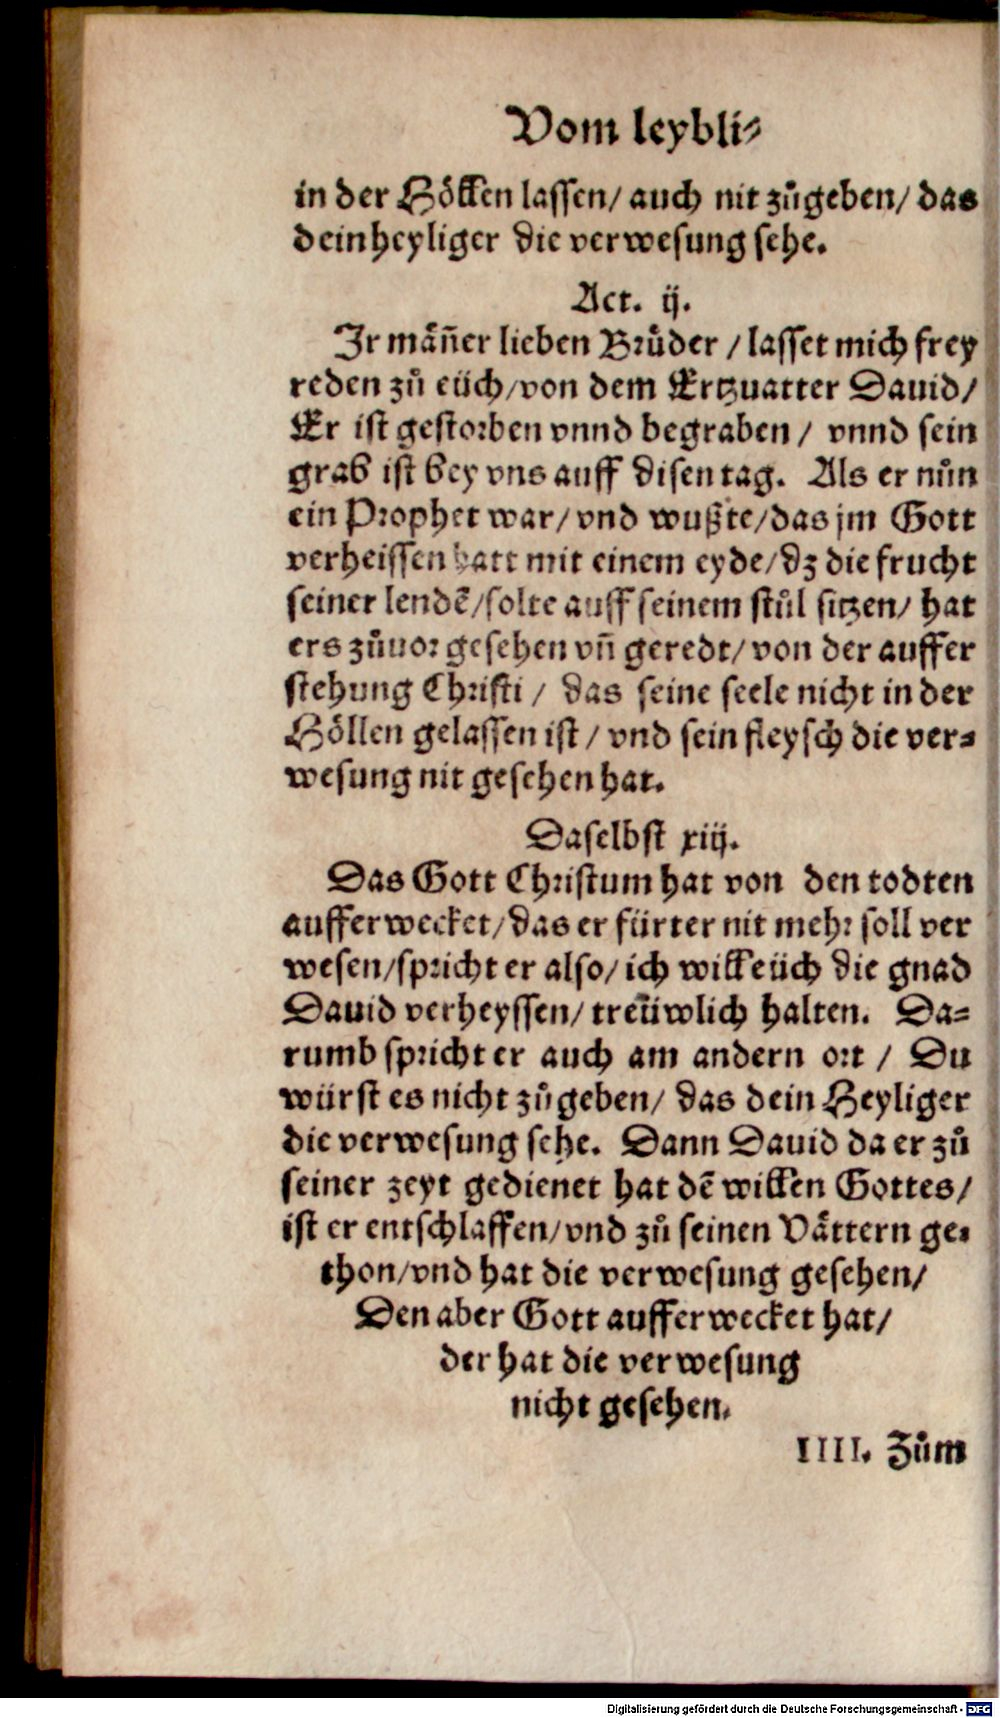 Vom leybli⸗
in der Höllen lassen/ auch nit zůgeben/ das
dein heyliger die verwesung sehe.
Act. ij.
Ir mäñer lieben Brůder / lasset mich frey
reden zů eüch/von dem Ertzuatter Dauid/
Er ist gestorben vnnd begraben / vnnd sein
grab ist bey vns auff disen tag. Als er nůn
ein Prophet war/ vnd wußte/das jm Gott
verheissen hatt mit einem eyde/dz die frucht
seiner lendẽ/solte auff seinem stůl sitzen/ hat
ers zůuor gesehen vñ geredt/ von der auffer
stehung Christi / das seine seele nicht in der
Höllen gelassen ist / vnd sein fleysch die ver⸗
wesung nit gesehen hat.
Daselbst xiij.
Das Gott Christum hat von den todten
aufferwecket/das er fürter nit mehr soll ver
wesen/spricht er also/ ich will eüch die gnad
Dauid verheyssen/ treüwlich halten. Da⸗
rumb spricht er auch am andern ort / Du
würst es nicht zůgeben/ das dein Heyliger
die verwesung sehe. Dann Dauid da er zů
seiner zeyt gedienet hat dẽ willen Gottes/
ist er entschlaffen/vnd zů seinen Vättern ge⸗
thon/vnd hat die verwesung gesehen/
Den aber Gott aufferwecket hat/
der hat die verwesung
nicht gesehen.
IIII. Zům
Digitalisierung gefördert durch die Deutsche Forschungsgemeinschaft - DFG